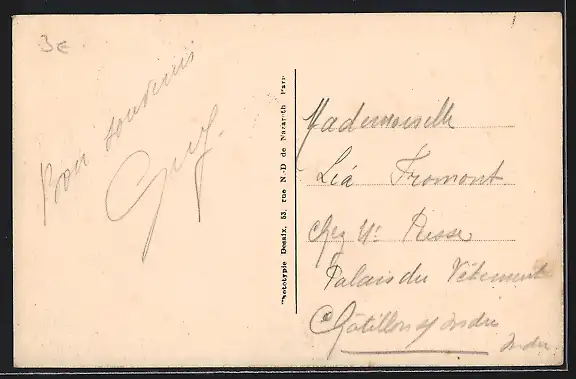 3€
Bon souvenir
Guy.
Phototypie Desaix, 53, rue N.-D de Nazareth Paris
Mademoiselle
Léa Fromont
chez Mr Resse
Palais du Vêtement
Châtillon s/ Indre
Indre